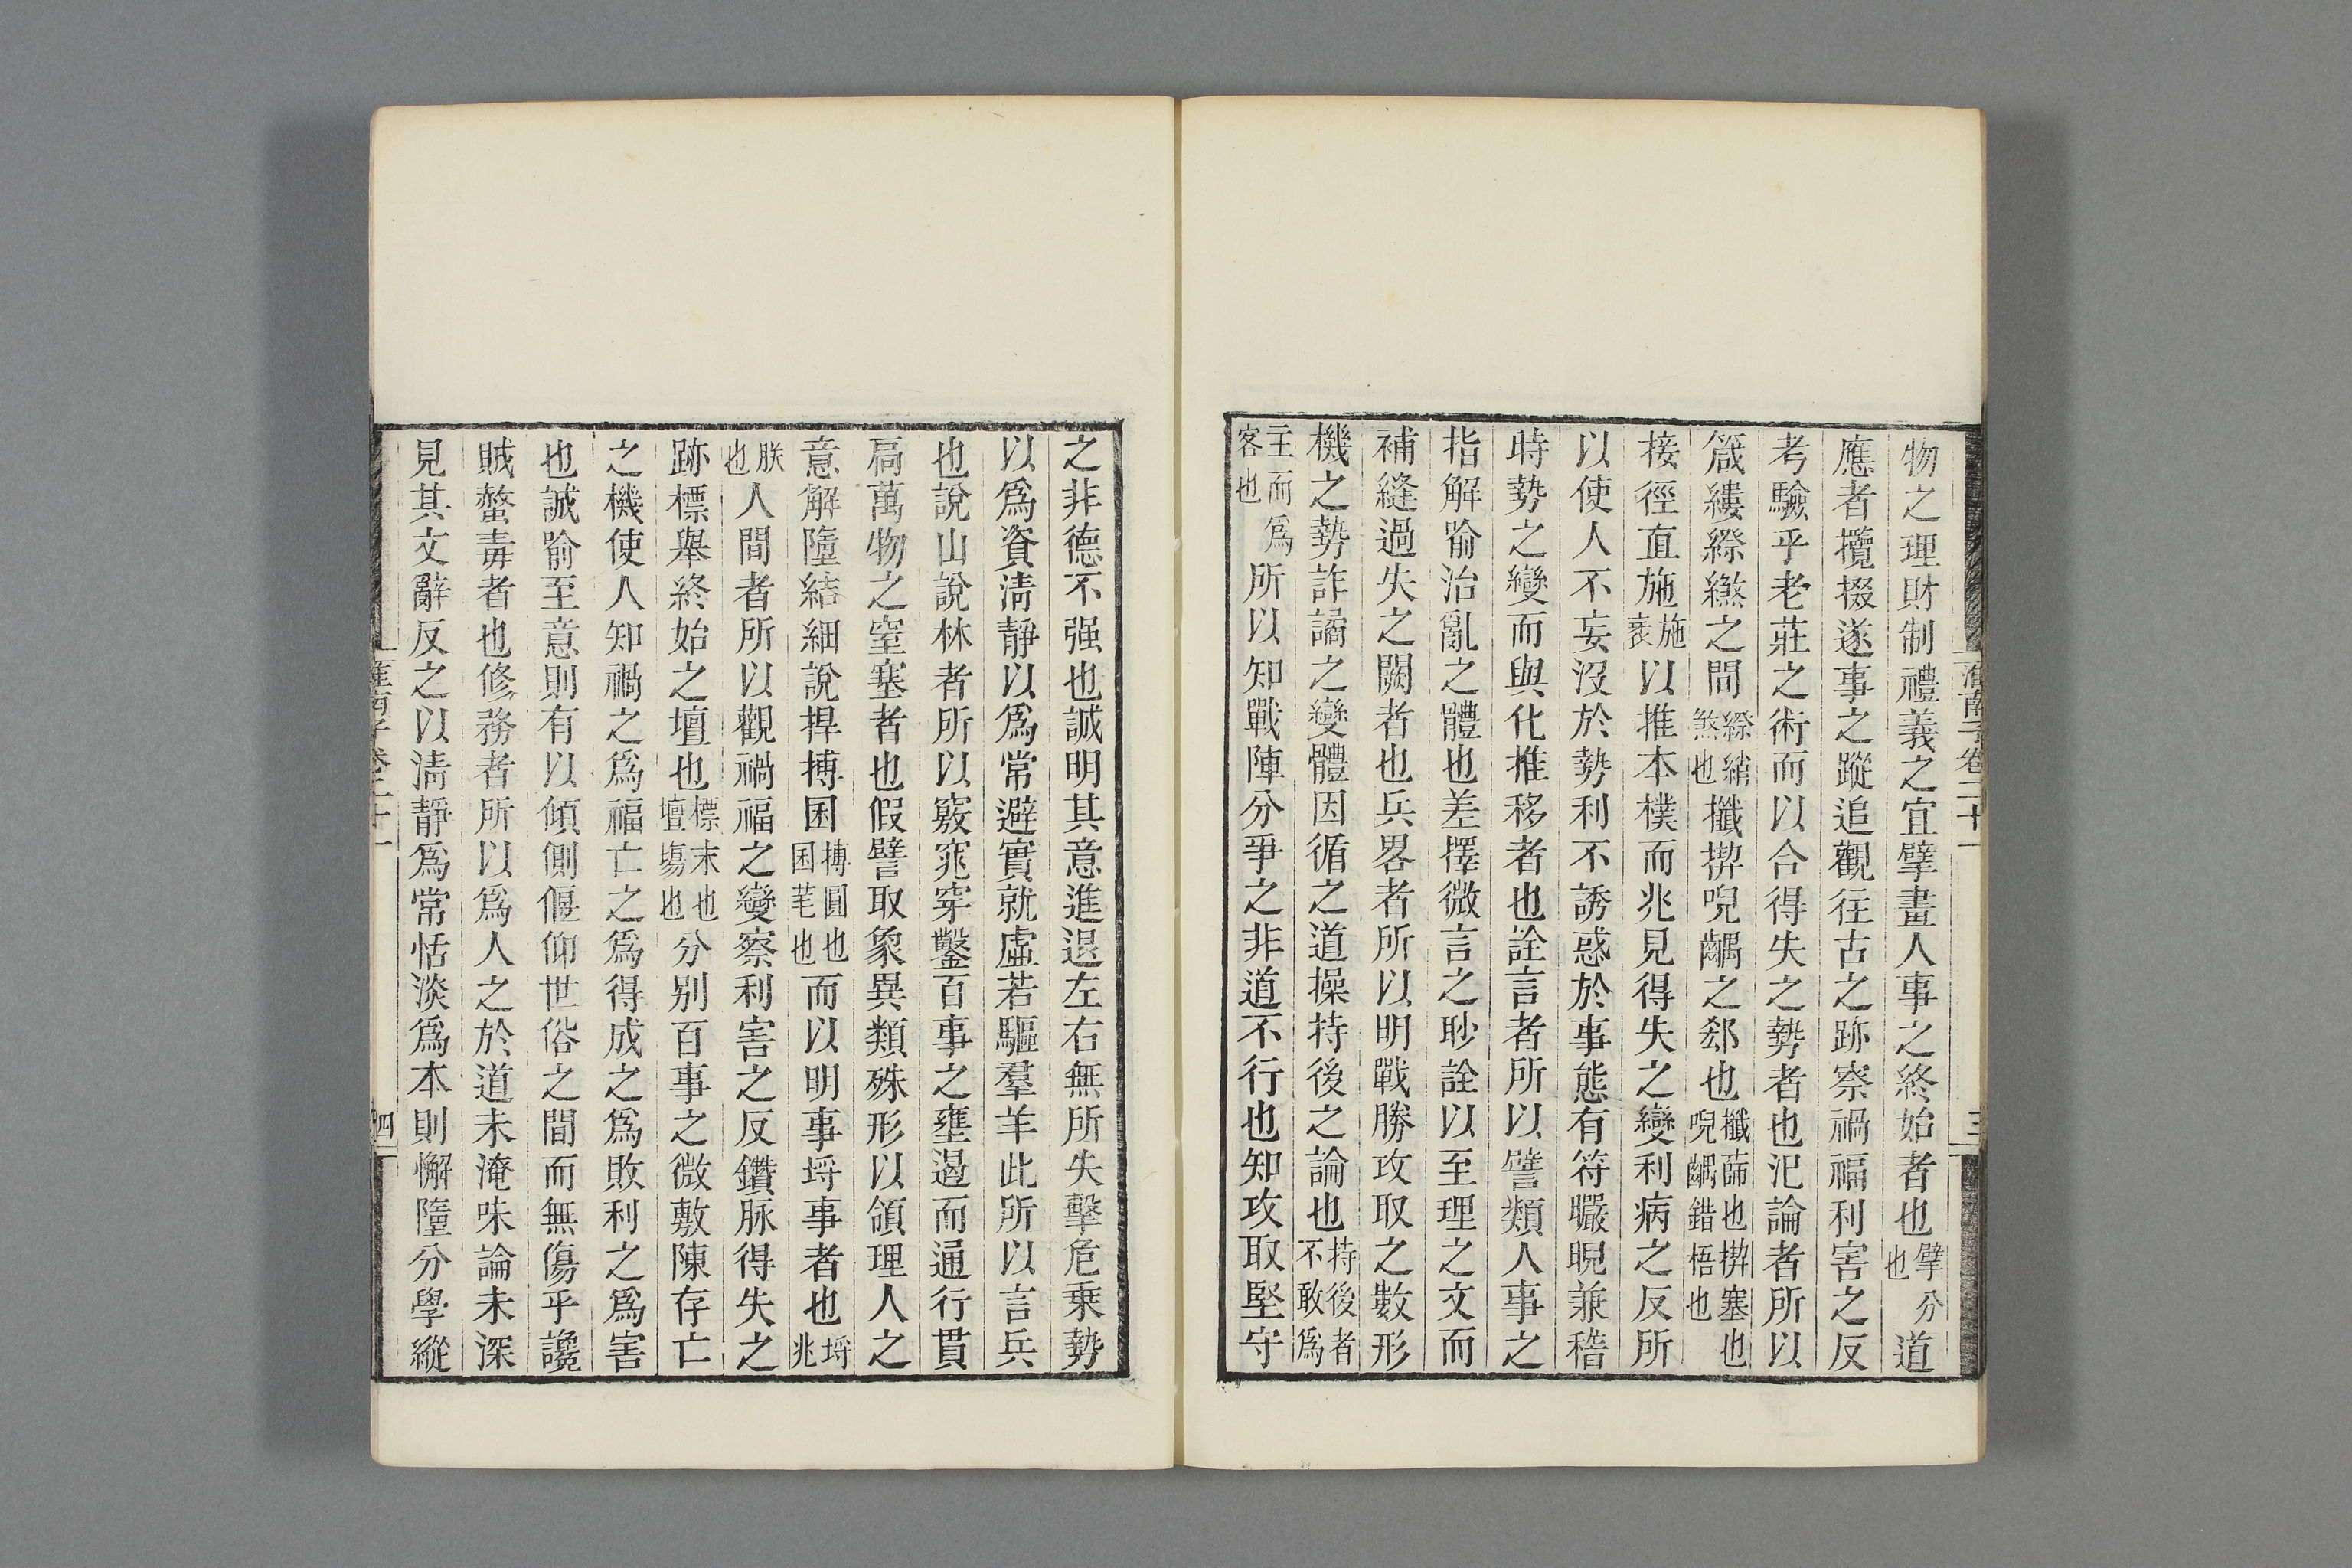 淮南子卷二十一
三
物之理財制禮義之宜擘畫人事之終始者也擘分也道
應者攬掇遂事之蹤追觀往古之跡察禍福利害之反
考驗乎老莊之術而以合得失之勢者也氾論者所以
箴縷縩繺之間縩綃煞也攕揳唲齵之郄也攕薛也揳塞也唲齵錯梧也
接徑直施施衺以推本樸而兆見得失之變利病之反所
以使人不妄沒於勢利不誘惑於事態有符曮晲兼稽
時勢之變而與化推移者也詮言者所以譬類人事之
指解喻治亂之體也差擇微言之眇詮以至理之文而
補縫過失之闕者也兵畧者所以明戰勝攻取之數形
機之勢詐譎之變體因循之道操持後之論也持後者不敢爲
主而爲客也所以知戰陣分爭之非道不行也知攻取堅守
之非德不强也誠明其意進退左右無所失擊危乗勢
以爲資淸靜以爲常避實就虛若驅羣羊此所以言兵
也說山說林者所以竅窕穿鑿百事之壅遏而通行貫
扃萬物之窒塞者也假譬取象異類殊形以領理人之
意解墮結細說捍搏囷搏圓也囷芼也而以明事埒事者也埒兆
朕也人間者所以觀禍福之變察利害之反鑽脉得失之
跡標舉終始之壇也標末也壇塲也分别百事之微敷陳存亡
之機使人知禍之爲福亡之爲得成之爲敗利之爲害
也誠喻至意則有以傾側偃仰世俗之間而無傷乎讒
賊螫毒者也修務者所以爲人之於道未淹味論未深
見其文辭反之以淸靜爲常恬淡爲本則懈墮分學縱
淮南子卷二十一
四